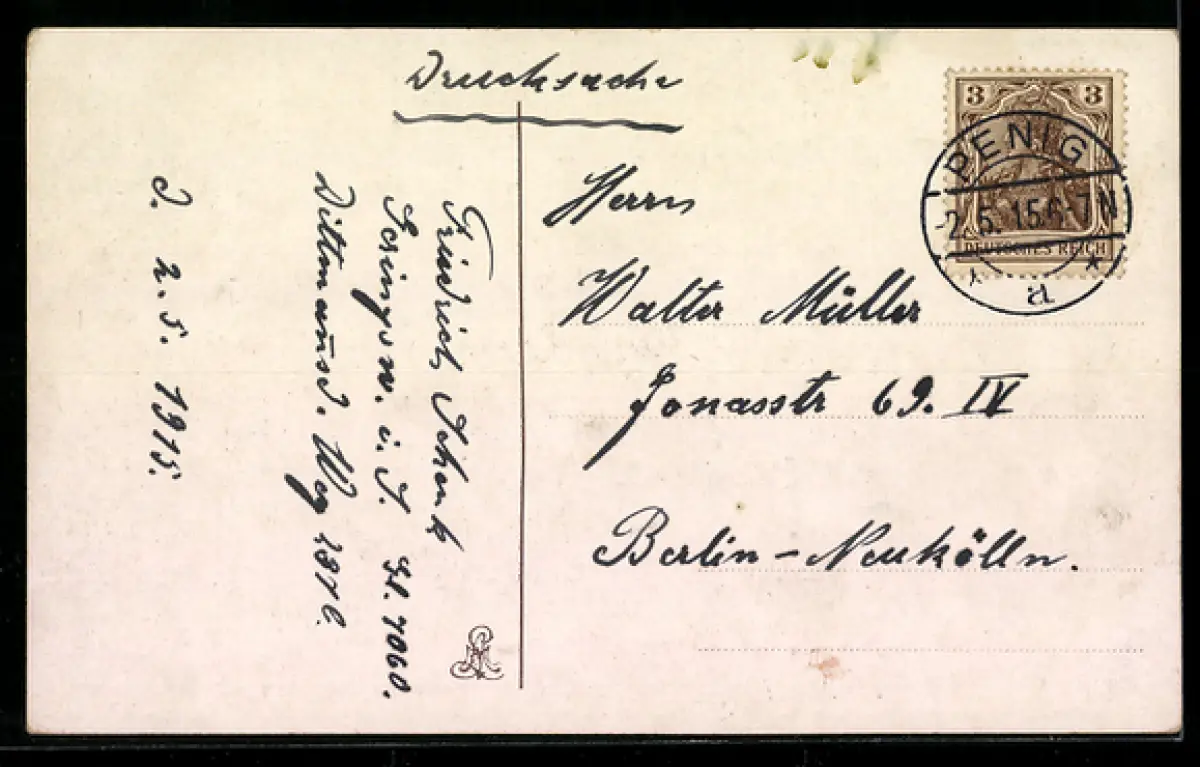 Drucksache
3 3
PENIG
2.5.15.6-7N
DEUTSCHES REICH
a
Herrn
Walter Müller
Jonasstr 69. IV
Berlin-Neukölln.
Friedrich Schenk
i. S. 7060.
Weg 237
d. 2.5.1915.